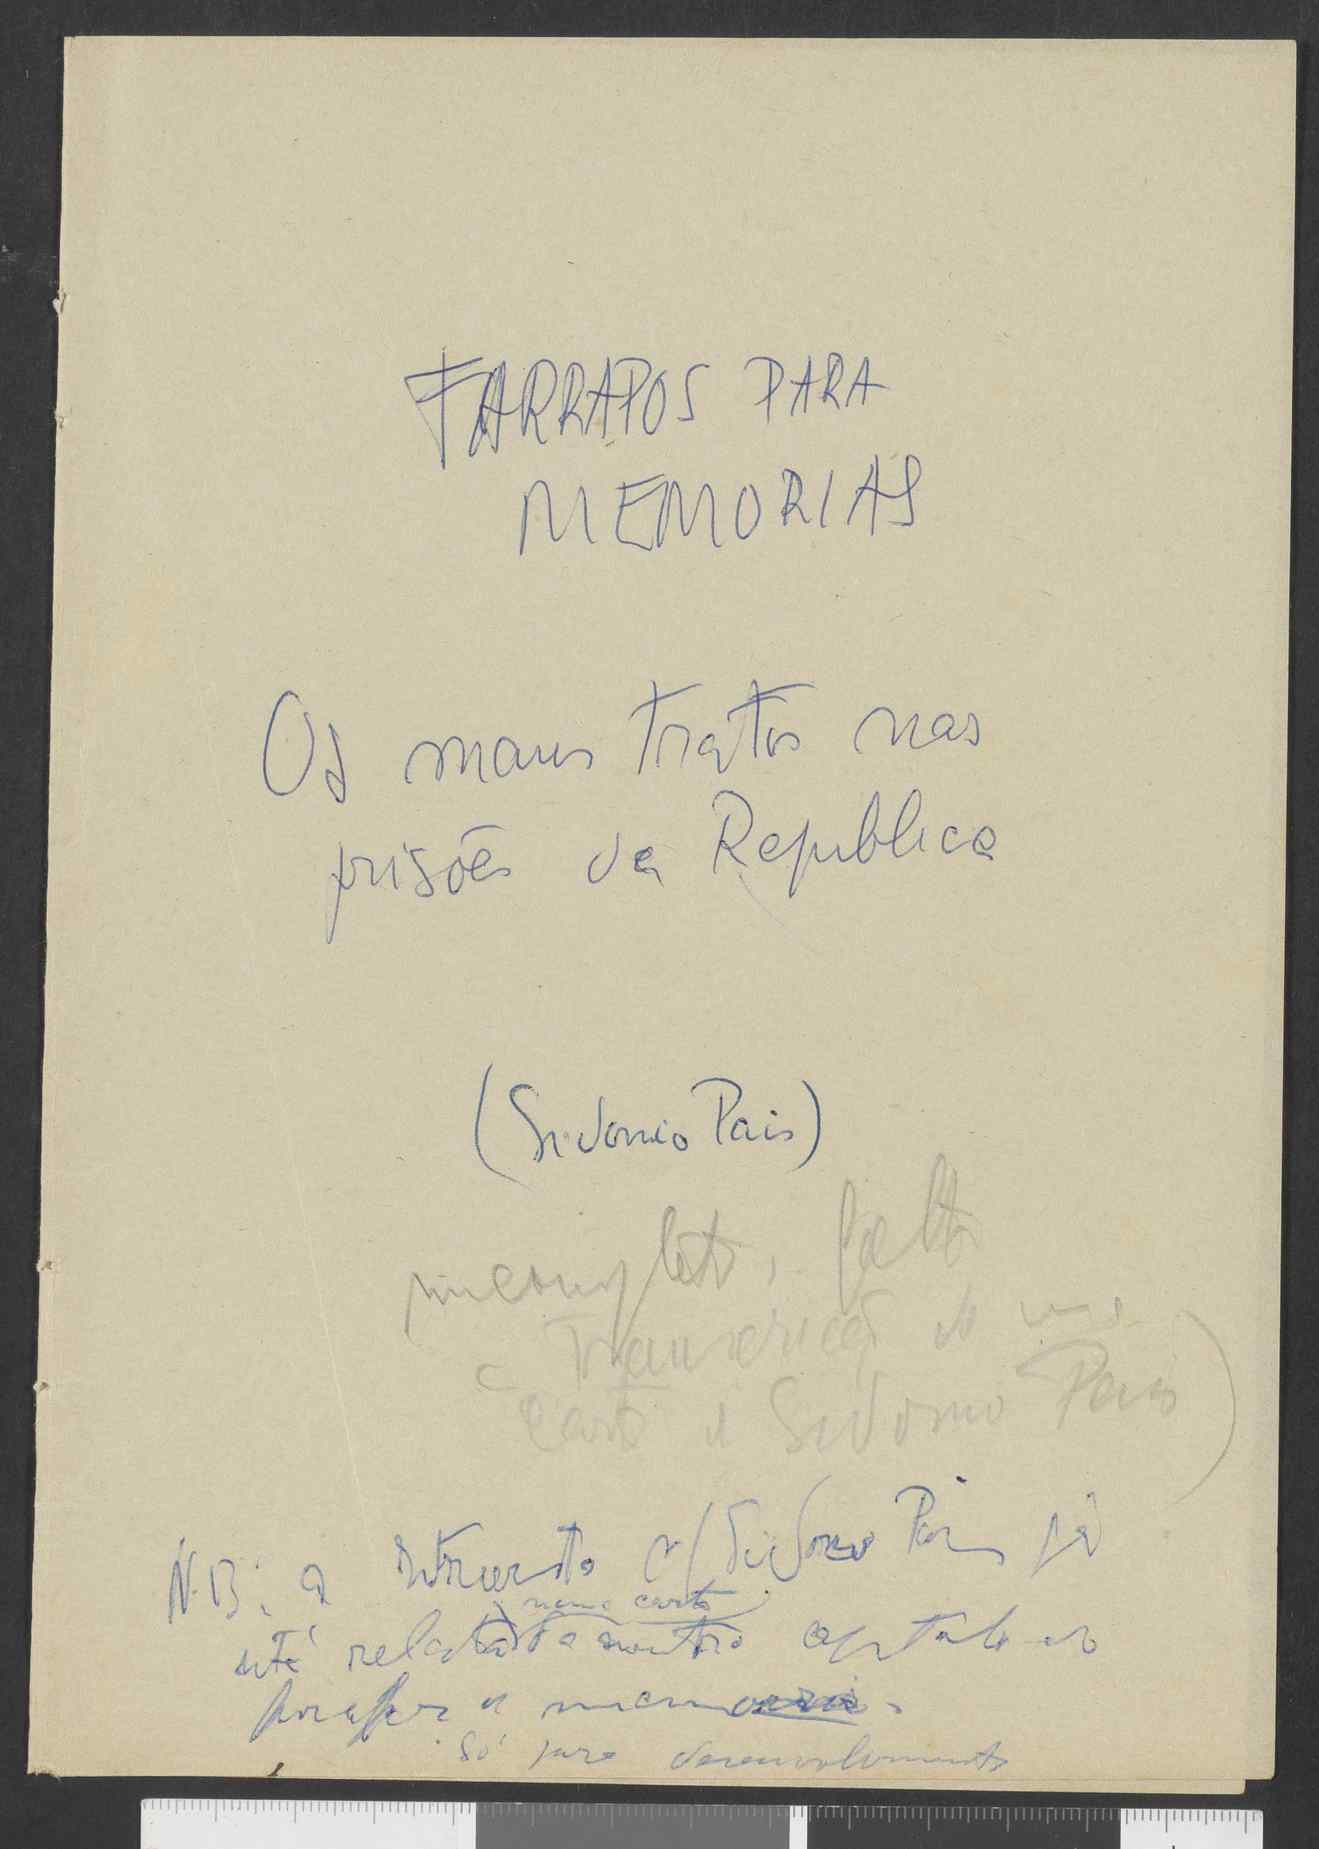 FARRAPOS PARA
MEMORIAS
Os maus tratos nas
prisões da Republica
(Sidonio Pais)
incompleto, falta
a transcrição de uma
carta a Sidonio Pais)
N.B: a c/ Sidonio Pais já
numa carta
está relatada noutro
para memorias
Só para desenvolvimento